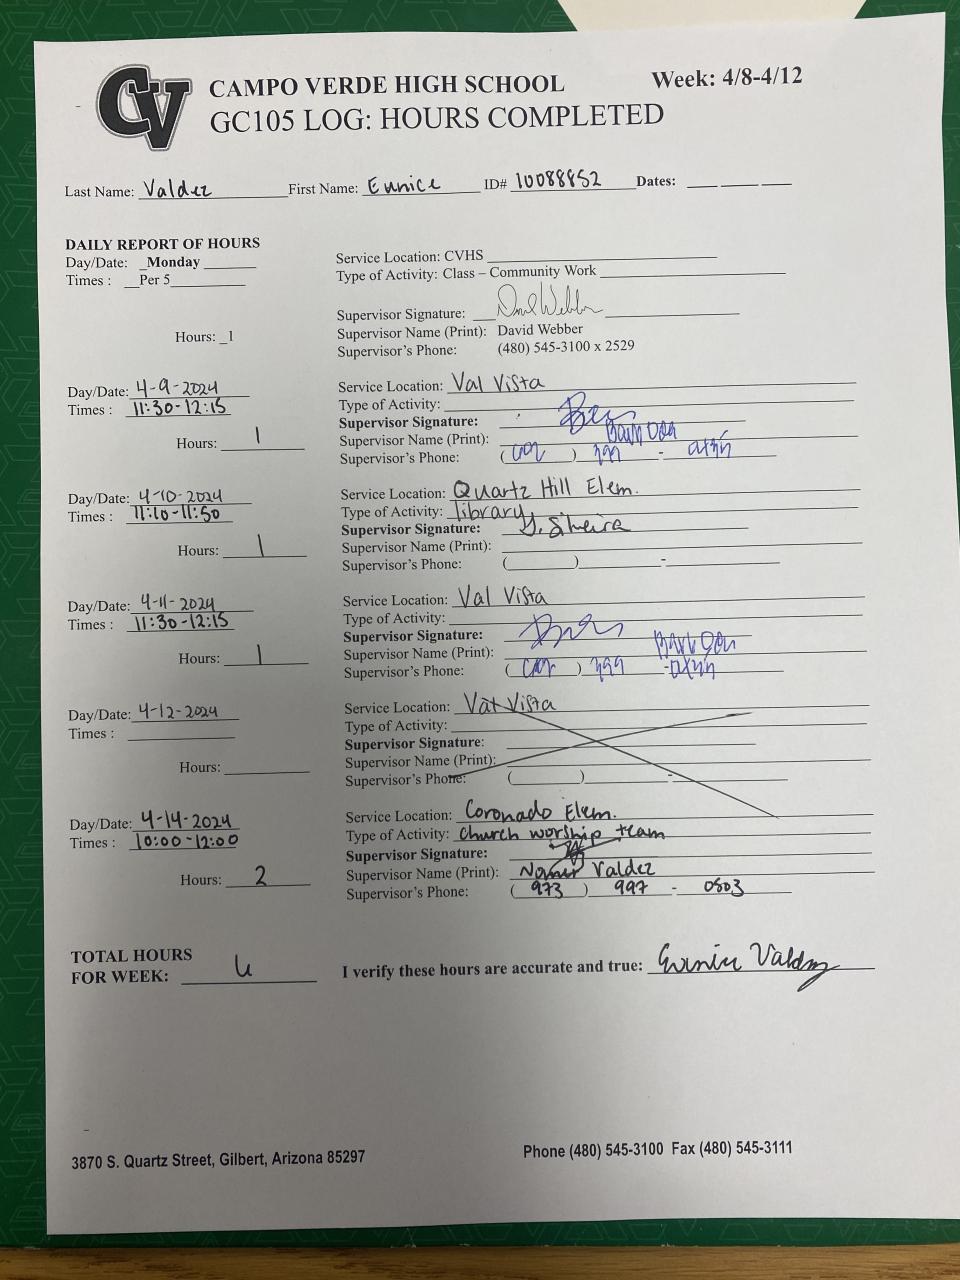 CV
CAMPO VERDE HIGH SCHOOL Week: 4/8-4/12
GC105 LOG: HOURS COMPLETED
Last Name: Valdez First Name: Eunice ID# 10088852 Dates: ___ ____ ___
DAILY REPORT OF HOURS
Day/Date: _Monday
Times : __Per 5
Hours: _1
Service Location: CVHS
Type of Activity: Class – Community Work
Supervisor Signature: David Webber
Supervisor Name (Print): David Webber
Supervisor's Phone: (480) 545-3100 x 2529
Day/Date: 4-9-2024
Times : 11:30-12:15
Hours: 1
Service Location: Val Vista
Type of Activity:
Supervisor Signature:
Supervisor Name (Print):
Supervisor's Phone: ( ) -
Day/Date: 4-10-2024
Times : 11:10-11:50
Hours: 1
Service Location: Quartz Hill Elem.
Type of Activity: library
Supervisor Signature:
Supervisor Name (Print):
Supervisor's Phone: ( ) -
Day/Date: 4-11-2024
Times : 11:30-12:15
Hours: 1
Service Location: Val Vista
Type of Activity:
Supervisor Signature:
Supervisor Name (Print):
Supervisor's Phone: ( ) -
Day/Date: 4-12-2024
Times :
Hours:
Service Location: Val Vista
Type of Activity:
Supervisor Signature:
Supervisor Name (Print):
Supervisor's Phone: ( ) -
Day/Date: 4-14-2024
Times : 10:00-12:00
Hours: 2
Service Location: Coronado Elem.
Type of Activity: Church worship team
Supervisor Signature:
Supervisor Name (Print): Valdez
Supervisor's Phone: (973) 997 - 0503
TOTAL HOURS
FOR WEEK: 6
I verify these hours are accurate and true: Eunice Valdez
3870 S. Quartz Street, Gilbert, Arizona 85297
Phone (480) 545-3100 Fax (480) 545-3111